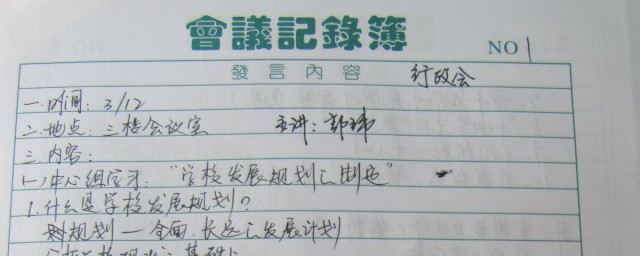 會議記錄簿
NO 1
發言內容 行政会
一.时间: 3/12
二.地点: 三楼会议室 主讲: 郭瑋
三.内容:
(一)中心组学习: "学校发展规划的制定"
1.什么是学校发展规划?
规划—全面.长远的发展计划